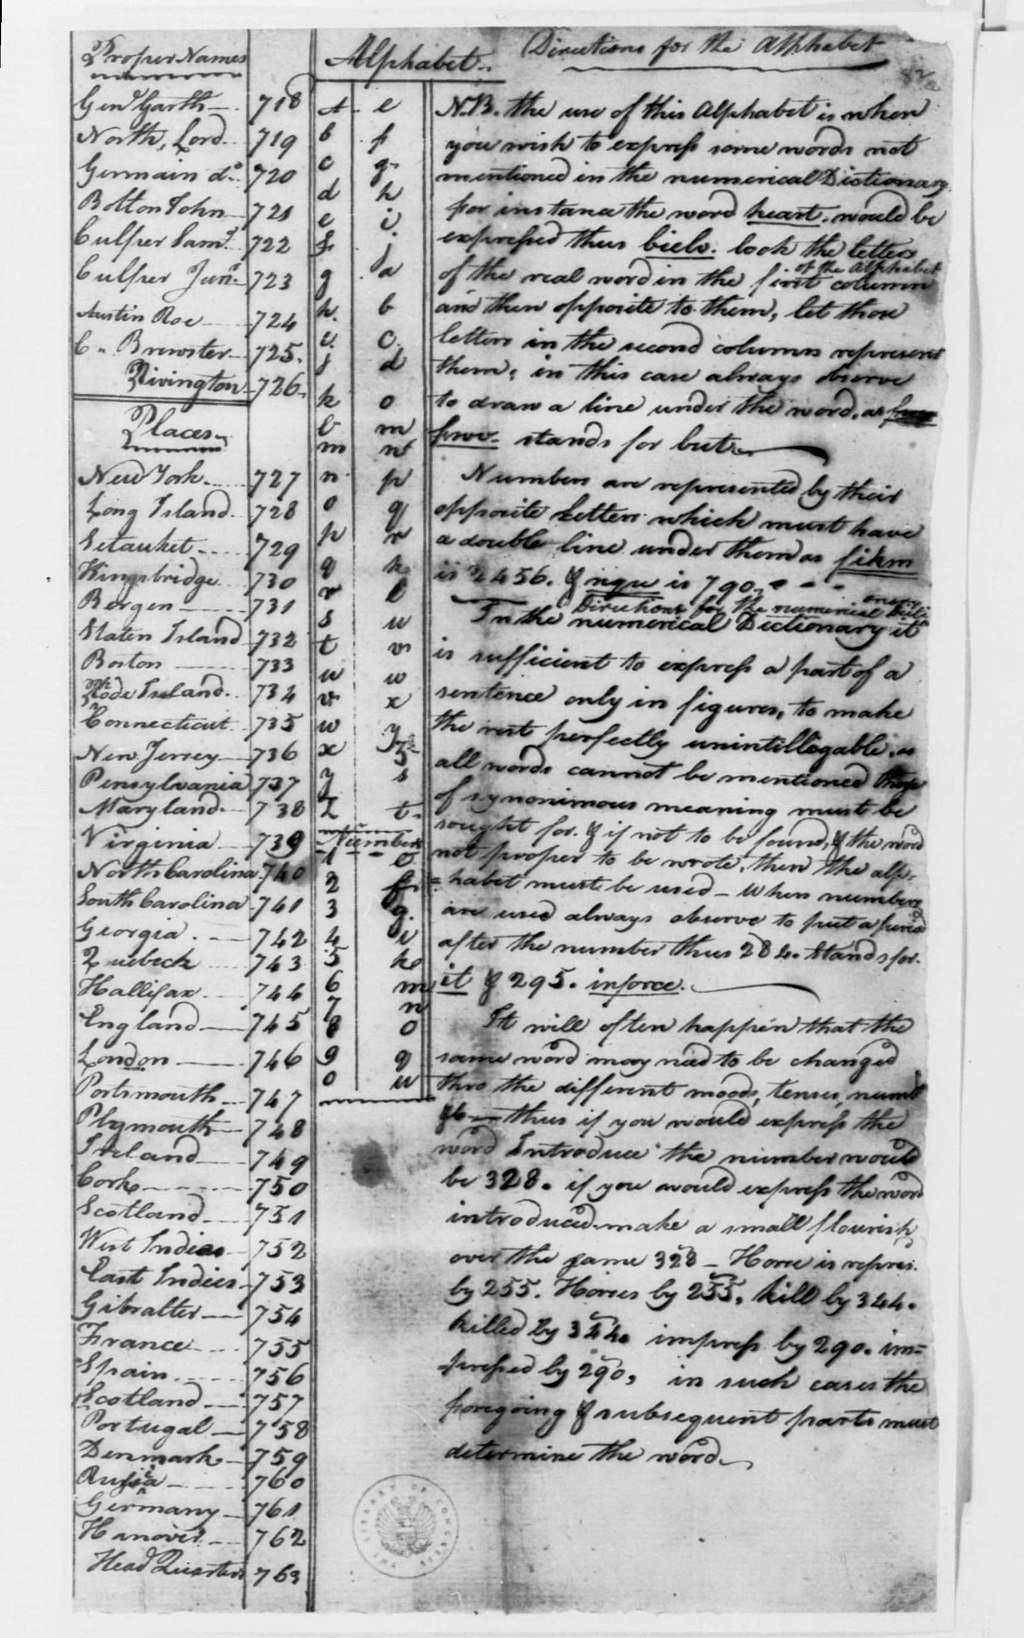 Proper Names
Genl Garth 718
North, Lord 719
Germain do 720
Bolton John 721
Culper Saml 722
Culper Junr 723
Austin Roe 724
C. Brewster 725.
Rivington 726.
Places
New York 727
Long Island 728
Setauket 729
Kingsbridge 730
Bergen 731
Staten Island 732
Boston 733
Rode Island 734
Connecticut 735
New Jersey 736
Pensylvania 737
Maryland 738
Virginia 739
North Carolina 740
South Carolina 741
Georgia 742
Quebeck 743
Hallifax 744
England 745
London 746
Portsmouth 747
Plymouth 748
Ireland 749
Cork 750
Scotland 751
West Indies 752
East Indies 753
Gibralter 754
France 755
Spain 756
Scotland 757
Portugal 758
Denmark 759
Russia 760
Germany 761
Hanover 762
Head Quarters 763
Alphabet.
a e
b f
c g
d h
e i
f j
g a
h b
i c
j d
k o
l m
m n
n p
o q
p r
q k
r l
s u
t v
u w
v x
w y
x z
y s
z t
Numbers
1 e
2 f
3 g
4 i
5 k
6 m
7 n
8 o
9 q
0 u
Directions for the Alphabet
N.B. the use of this Alphabet is when
you wish to express some words not
mentioned in the numerical Dictionary
for instance the word heart. would be
expressed thus biels. look the letters
of the real word in the first column of the Alphabet
and then opposite to them, let those
letters in the second columns represent
them, in this case always observe
to draw a line under the word. as
fwv. stands for but
Numbers are represented by their
opposite Letters which must have
a double line under them as fikm
is 2456. & nqu is 790.
Directions for the numerical
In the numerical Dictionary it
is sufficient to express a part of a
sentence only in figures, to make
the rest perfectly unintillegable. as
all words cannot be mentioned those
of synonimous meaning must be
sought for. & if not to be found, & the word
not proper to be wrote, then the alp-
habet must be used – When numbers
are used always observe to put a period
after the number thus 284. stands for
it & 295. inforce.
It will often happen that the
same word may need to be changed
thro the different moods, tenses, numb
&c – thus if you would express the
word Introduce the number would
be 328. if you would express the word
introduced make a small flourish
over the same 328 – Horse is repres.
by 255. Horses by 255. kill by 344.
killed by 344. impress by 290. im=
pressed by 290, in such cases the
foregoing & subsequent parts must
determine the word
THE LIBRARY OF CONGRESS